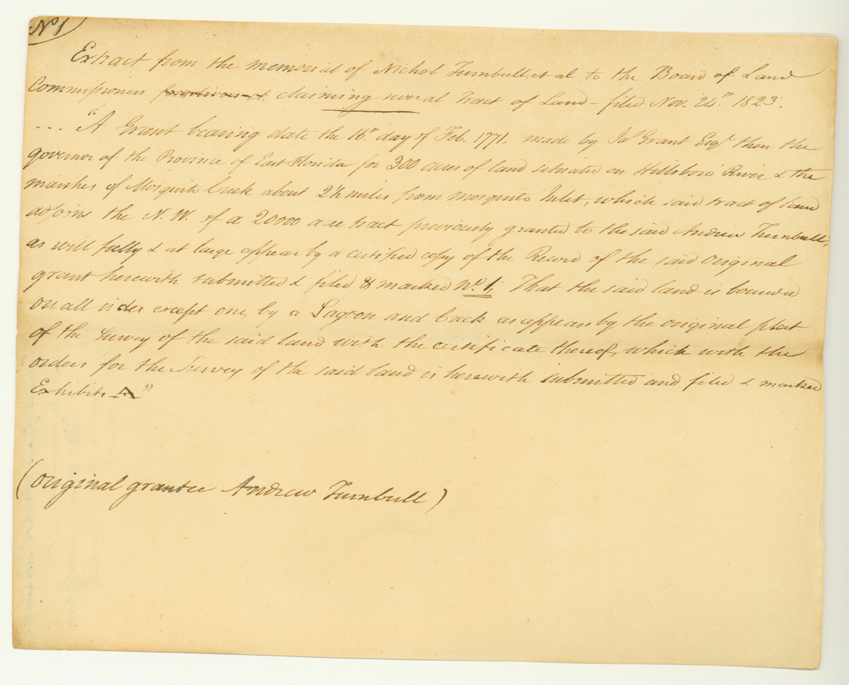 No 1
Extract from the memorial of Nichol Turnbull et al to the Board of Land
Commissioners claiming several Tract of Land - filed Nov. 24th 1823.
... "A Grant bearing date the 16th day of Feb. 1771. made by Jas Grant Esqr then the
governor of the Province of East Florida for 300 acres of land situated on Hillsboro River & the
marshes of Mosquito Creek about 2½ miles from Mosquito Inlet, which said tract of land
adjoins the N.W. of a 20000 acre tract previously granted to the said Andrew Turnbull,
as will fully & at large appear by a certified copy of the Record of the said original
grant herewith submitted & filed & marked No 1. That the said land is bound
on all sides except one, by a Lagoon and Creek as appears by the original plat
of the survey of the said land with the certificate thereof, which with the
orders for the Survey of the said land is herewith submitted and filed & marked
Exhibits A"
(original grantee Andrew Turnbull)